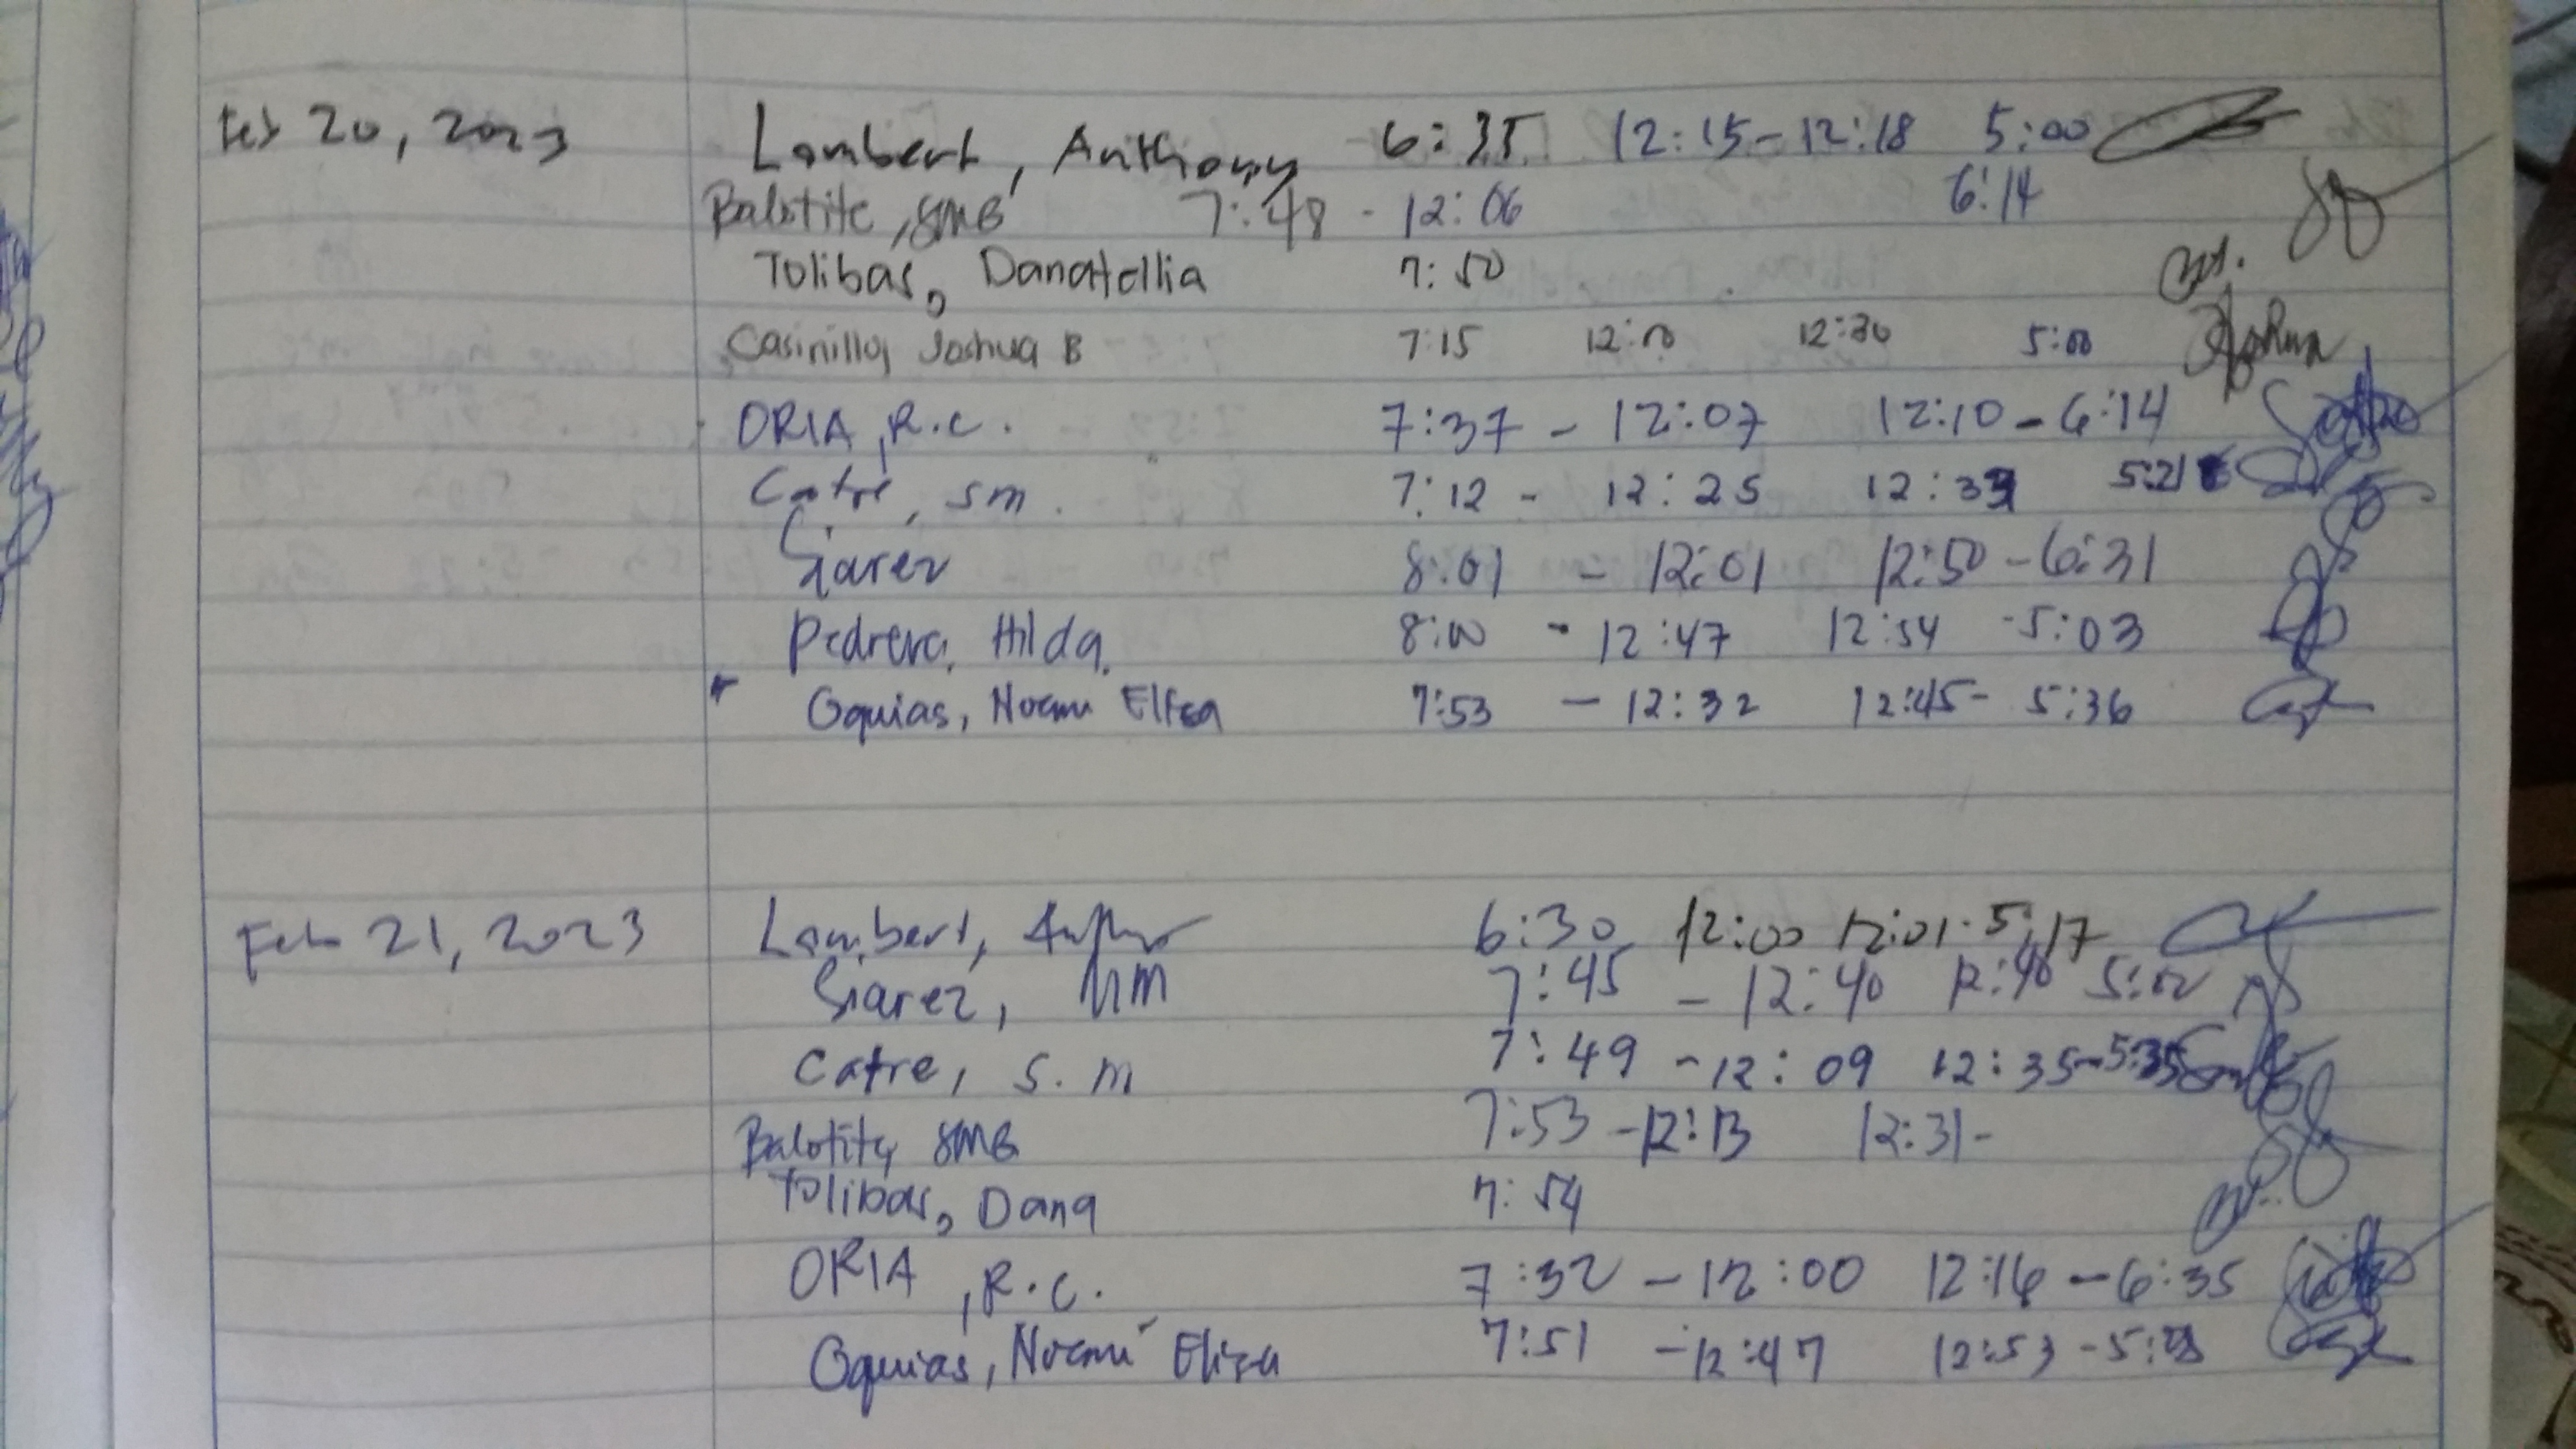 Feb 20, 2023 Lambert, Anthony 6:35 12:15-12:18 5:00
Balotite, SMB 7:48 - 12:06 6:14
Tolibas, Danatellia 7:50
Casinillo, Joshua B 7:15 12:10 12:30 5:00 Joshua
ORIA, R.C. 7:37 - 12:07 12:10 - 6:14
Catre, sm. 7:12 - 12:25 12:39 5:21
Siarez 8:01 - 12:01 12:50 - 6:31
Pedrera, Hilda 8:00 - 12:47 12:54 -5:03
Oquias, Noemi Elisa 7:53 - 12:32 12:45- 5:36
Feb 21, 2023 Lambert, 6:30 12:00 12:01- 5:17
Siarez, NM 7:45 - 12:40 12:40 5:02
Catre, S.m 7:49 - 12:09 12:35-5:35
Balotite, SMB 7:53 -12:13 12:31-
Tolibas, Dana 7:54
ORIA, R.C. 7:32 - 12:00 12:16 - 6:35
Oquias, Noemi Elisa 7:51 -12:47 12:53 -